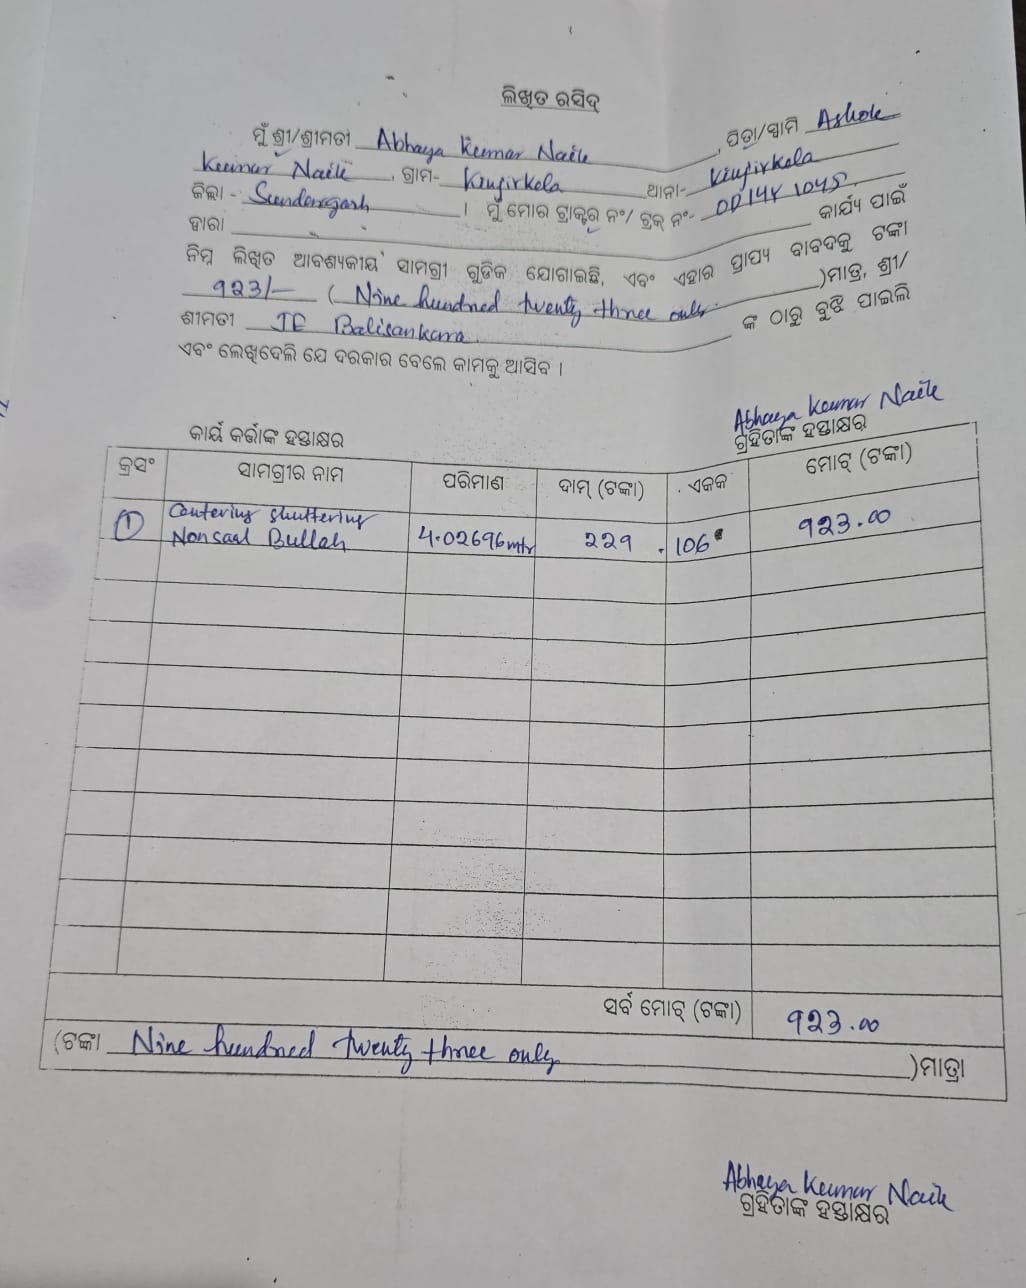 ଲିଖିତ ରସିଦ୍
ମୁଁ ଶ୍ରୀ/ଶ୍ରୀମତୀ Abhaya Kumar Naik, ପିତା/ସ୍ୱାମି Ashok
Kumar Naik, ଗ୍ରାମ- Kinjirkela ଥାନା- Kinjirkela
ଜିଲା - Sundargarh । ମୁଁ ମୋର ଟ୍ରାକ୍ଟର ନଂ/ ଟ୍ରକ୍ ନଂ- OD14Y 1045
ଦ୍ୱାରା କାର୍ଯ୍ୟ ପାଇଁ
ନିମ୍ନ ଲିଖିତ ଆବଶ୍ୟକୀୟ ସାମଗ୍ରୀ ଗୁଡିକ ଯୋଗାଇଛି, ଏବଂ ଏହାର ପ୍ରାପ୍ୟ ବାବଦକୁ ଟଙ୍କା
923/- ( Nine hundred twenty three only )ମାତ୍ର, ଶ୍ରୀ/
ଶ୍ରୀମତୀ JE Balisankara ଙ୍କ ଠାରୁ ବୁଝି ପାଇଲି
ଏବଂ ଲେଖିଦେଲି ଯେ ଦରକାର ବେଲେ କାମକୁ ଆସିବ ।
Abhaya Kumar Naik
କାର୍ଯ୍ୟ କର୍ତ୍ତାଙ୍କ ହସ୍ତାକ୍ଷର ଗ୍ରହିତାଙ୍କ ହସ୍ତାକ୍ଷର
କ୍ରସଂ ସାମଗ୍ରୀର ନାମ ପରିମାଣ ଦାମ୍ (ଟଙ୍କା) ଏକକ ମୋଟ୍ (ଟଙ୍କା)
① Centering shuttering
Nonsaal Bullah 4.02696 mtr 229 106 923.00
ସର୍ବ ମୋଟ୍ (ଟଙ୍କା) 923.00
(ଟଙ୍କା Nine hundred twenty three only )ମାତ୍ରା
Abhaya Kumar Naik
ଗ୍ରହିତାଙ୍କ ହସ୍ତାକ୍ଷର